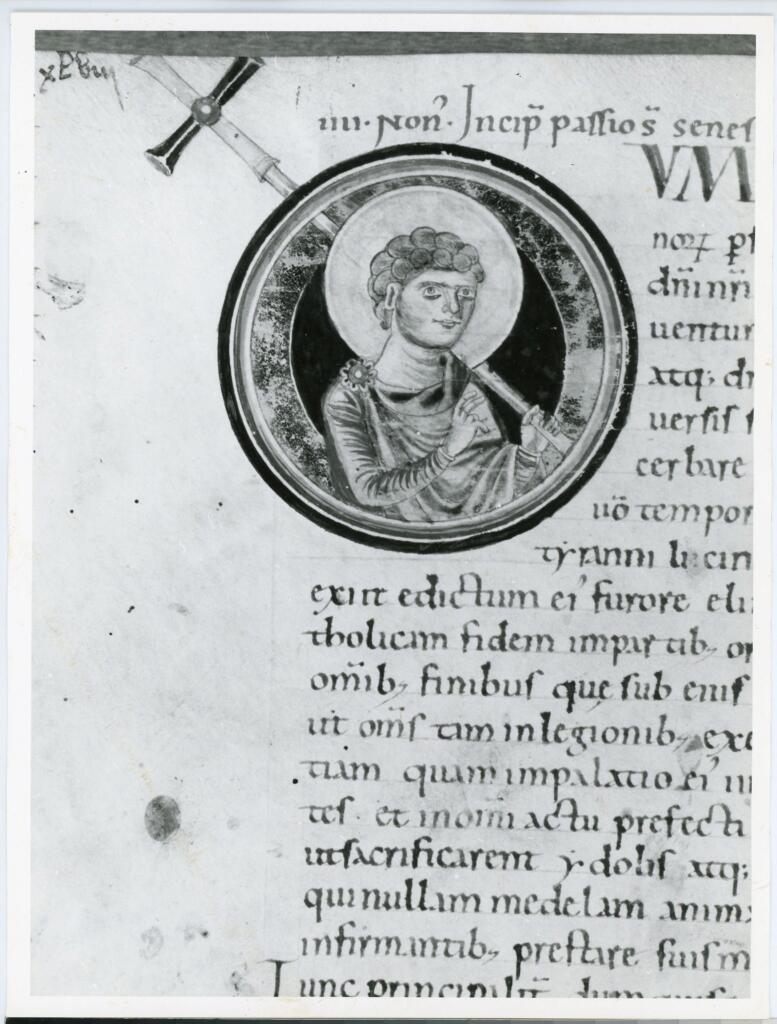 iiii. Non̄. Incip̄ passio s̄ senes
VM
norꝝ
dn̄i nr̄i
uentur
atq; di
uersis s
cerbare
uō tempor
tyranni licin
exiit edictum ei' furore eli
tholicam fidem impartib; or
om̄ib; finibus quę sub eius
ut om̄s tam in legionib; exe
tiam quam impalatio ei' in
tes. et inomi actu prefecti
ut sacrificarent ydolis atq;
qui nullam medelam anima
infirmantib; prestare suis
Tunc